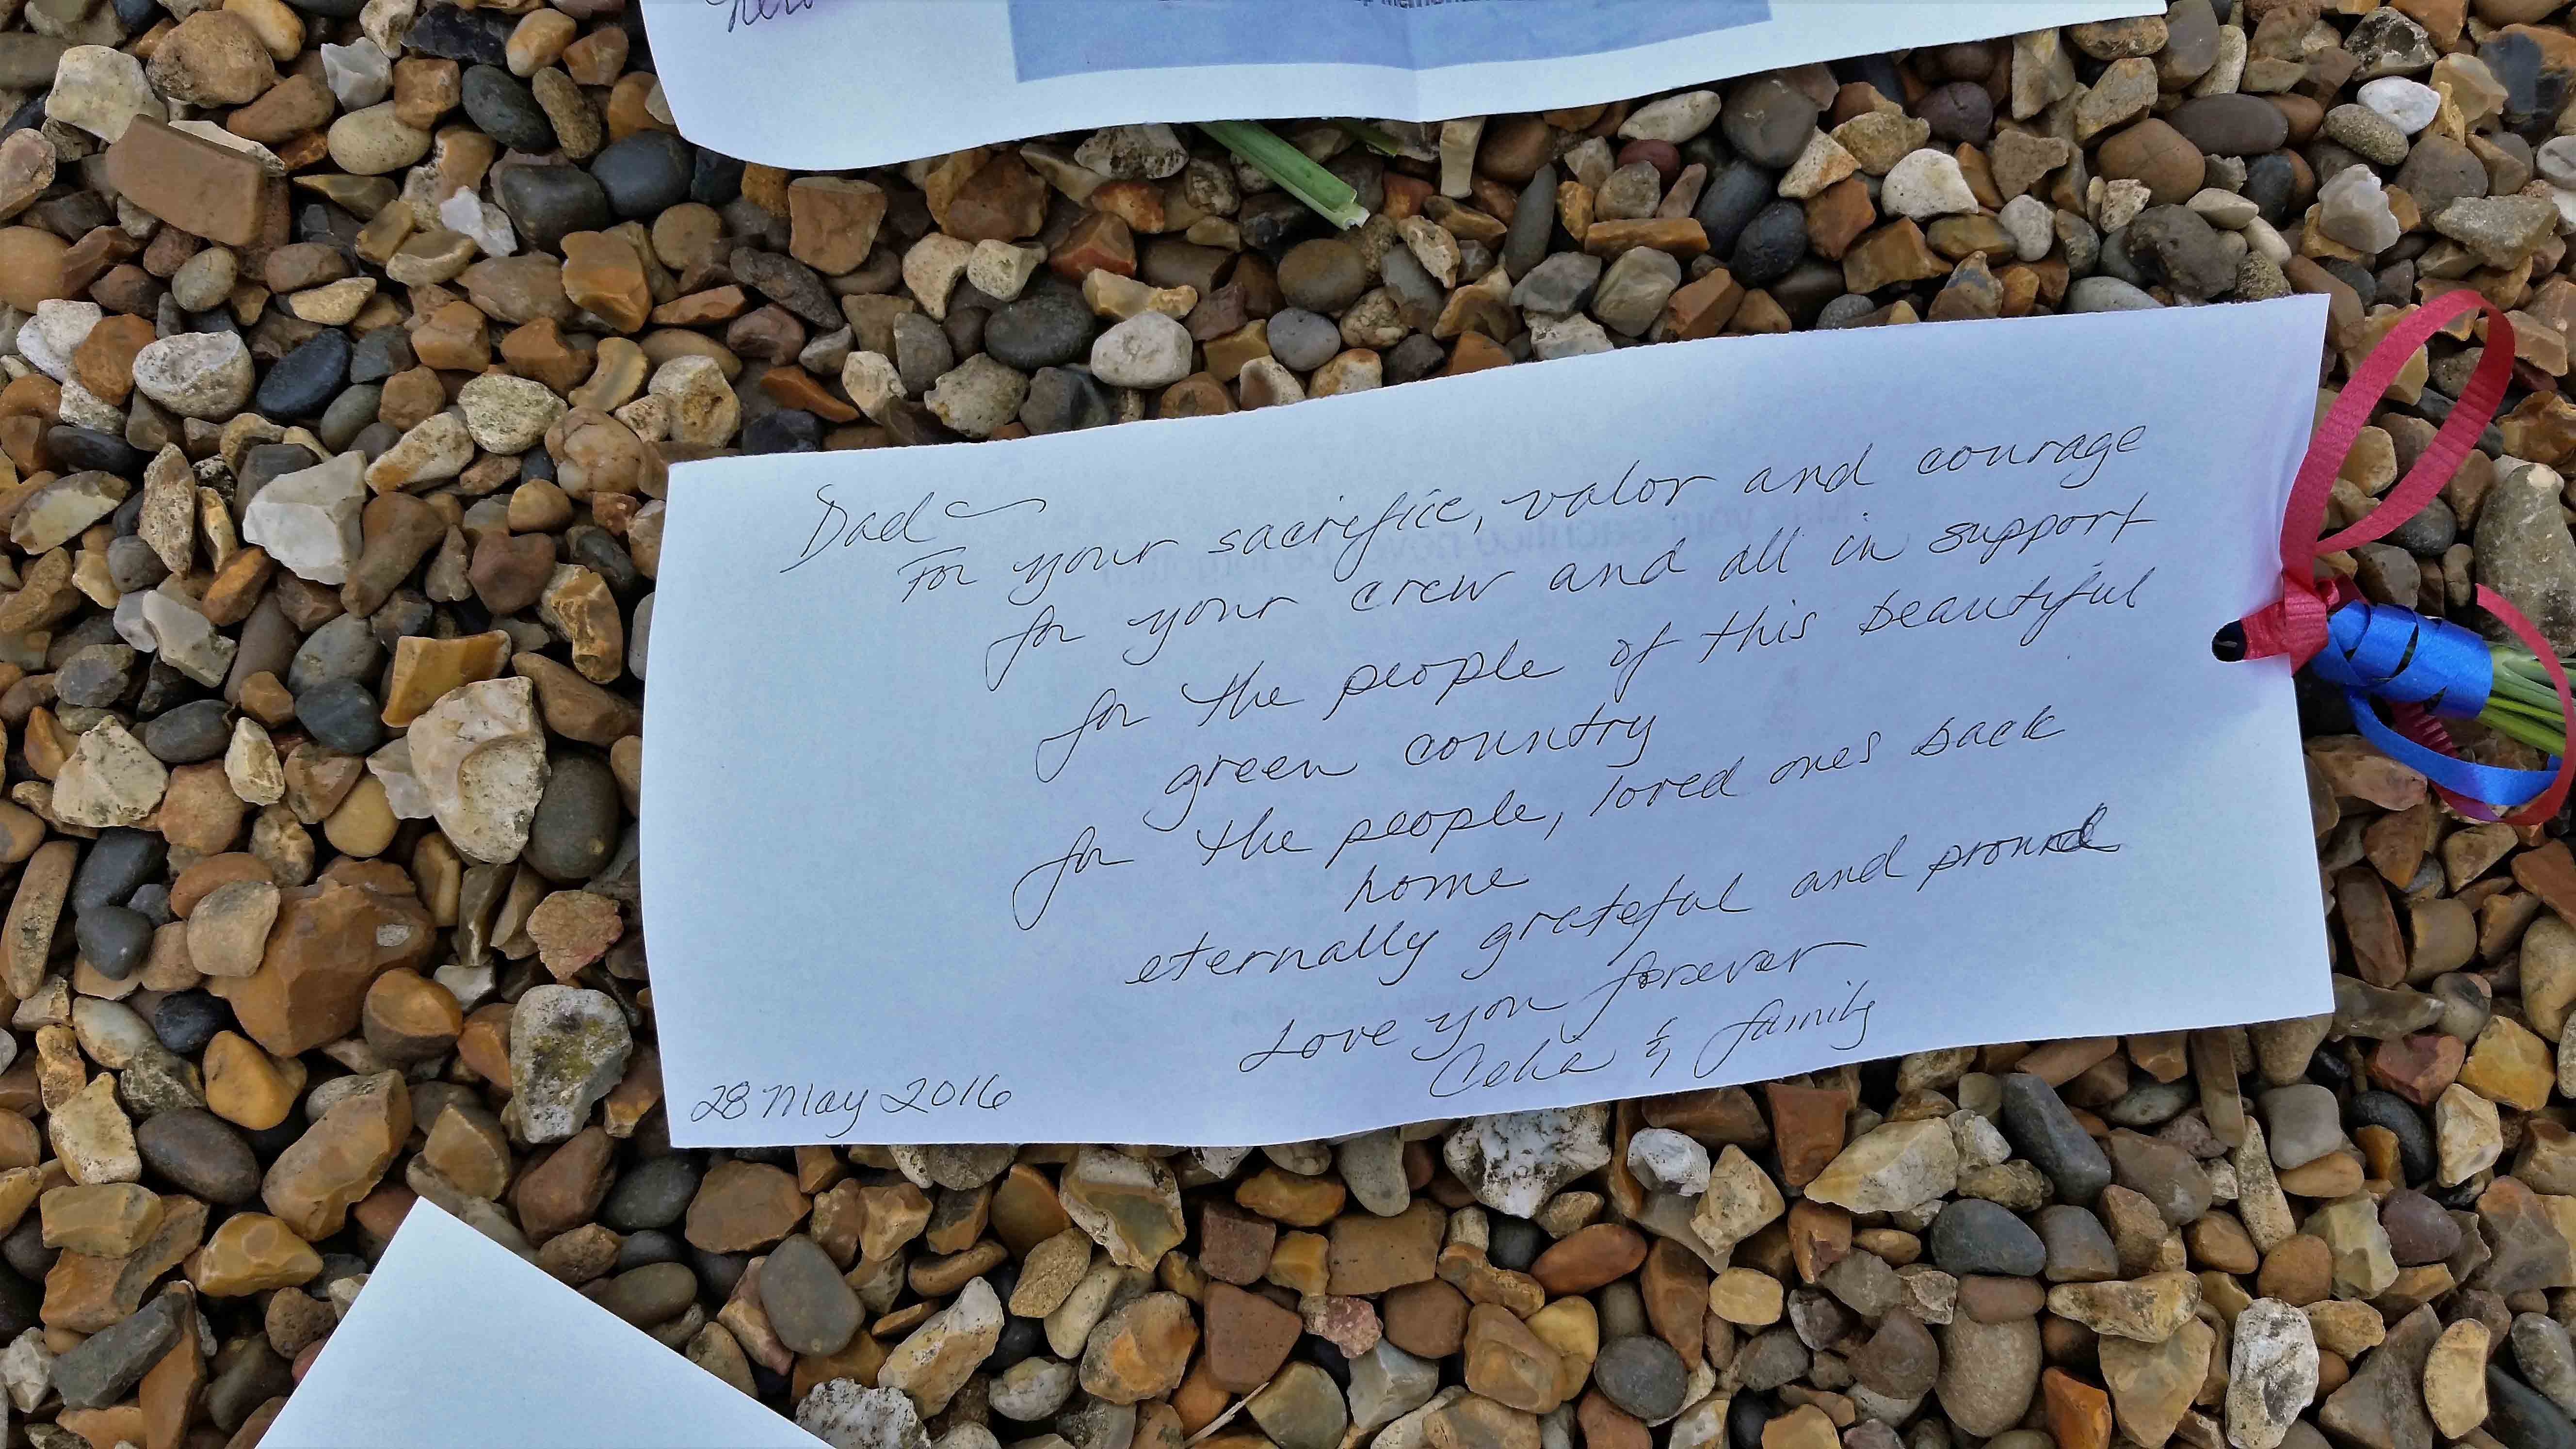 Dad ~
For your sacrifice, valor and courage
for your crew and all in support
for the people of this beautiful
green country
for the people, loved ones back
home
eternally grateful and proud
Love you forever
& family
28 May 2016